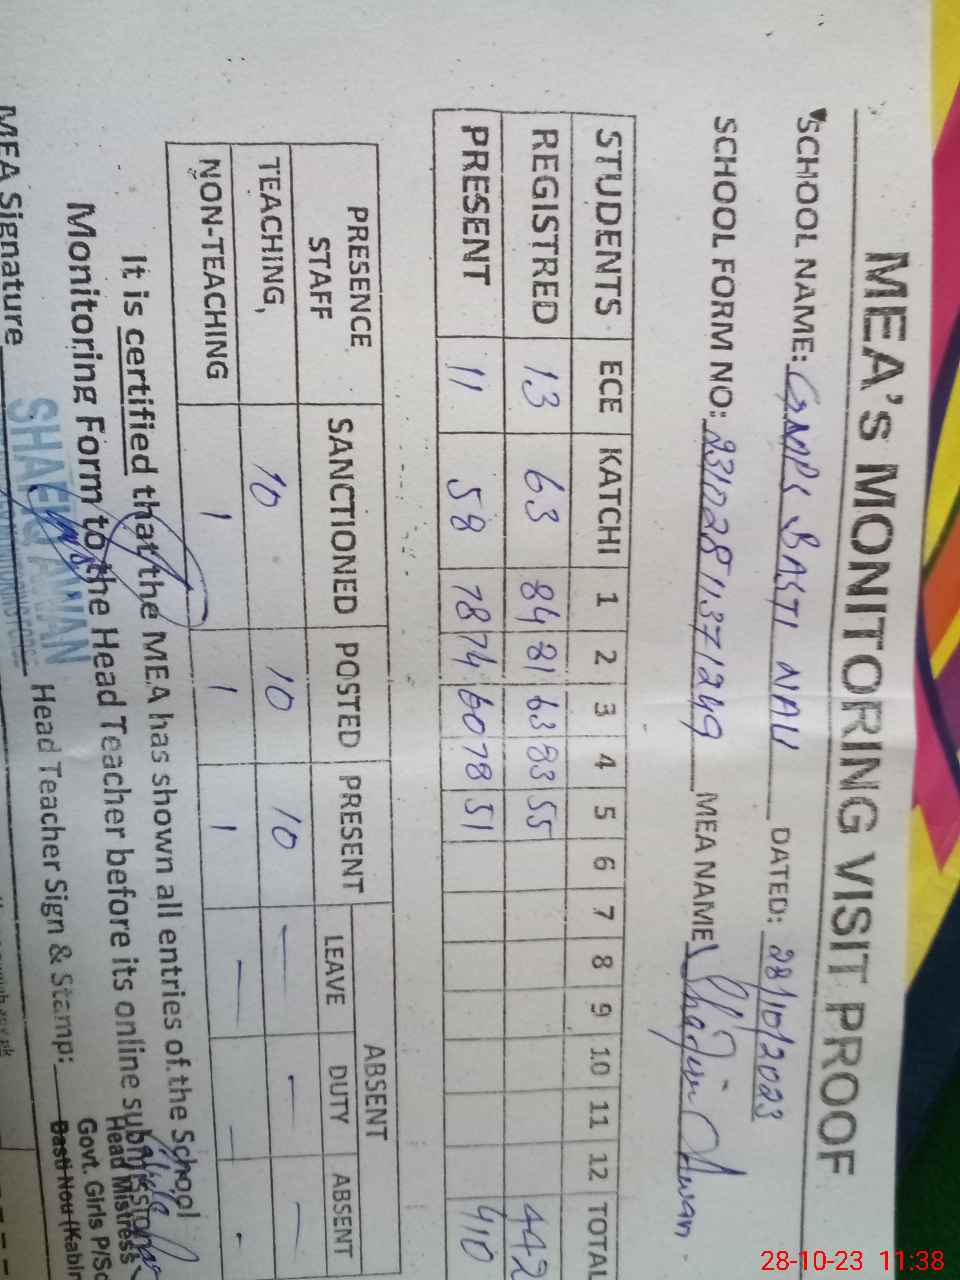 MEA'S MONITORING VISIT PROOF
SCHOOL NAME: GMPS BASTI NAU DATED: 28/10/2023
SCHOOL FORM NO: 23102811371249 MEA NAME Awan
STUDENTS ECE KATCHI 1 2 3 4 5 6 7 8 9 10 11 12 TOTAL
REGISTRED 13 63 84 81 63 83 55 442
PRESENT 11 58 78 74 60 78 51 410
PRESENCE STAFF SANCTIONED POSTED PRESENT ABSENT
LEAVE DUTY ABSENT
TEACHING, 10 10 10 — — —
NON-TEACHING 1 1 1 — — -
It is certified that the MEA has shown all entries of the School
Monitoring Form to the Head Teacher before its online submission
MEA Signature Head Teacher Sign & Stamp:
AWAN
Head Mistress
Govt. Girls P/Sc
Basti Nou (Kabir
28-10-23 11:38